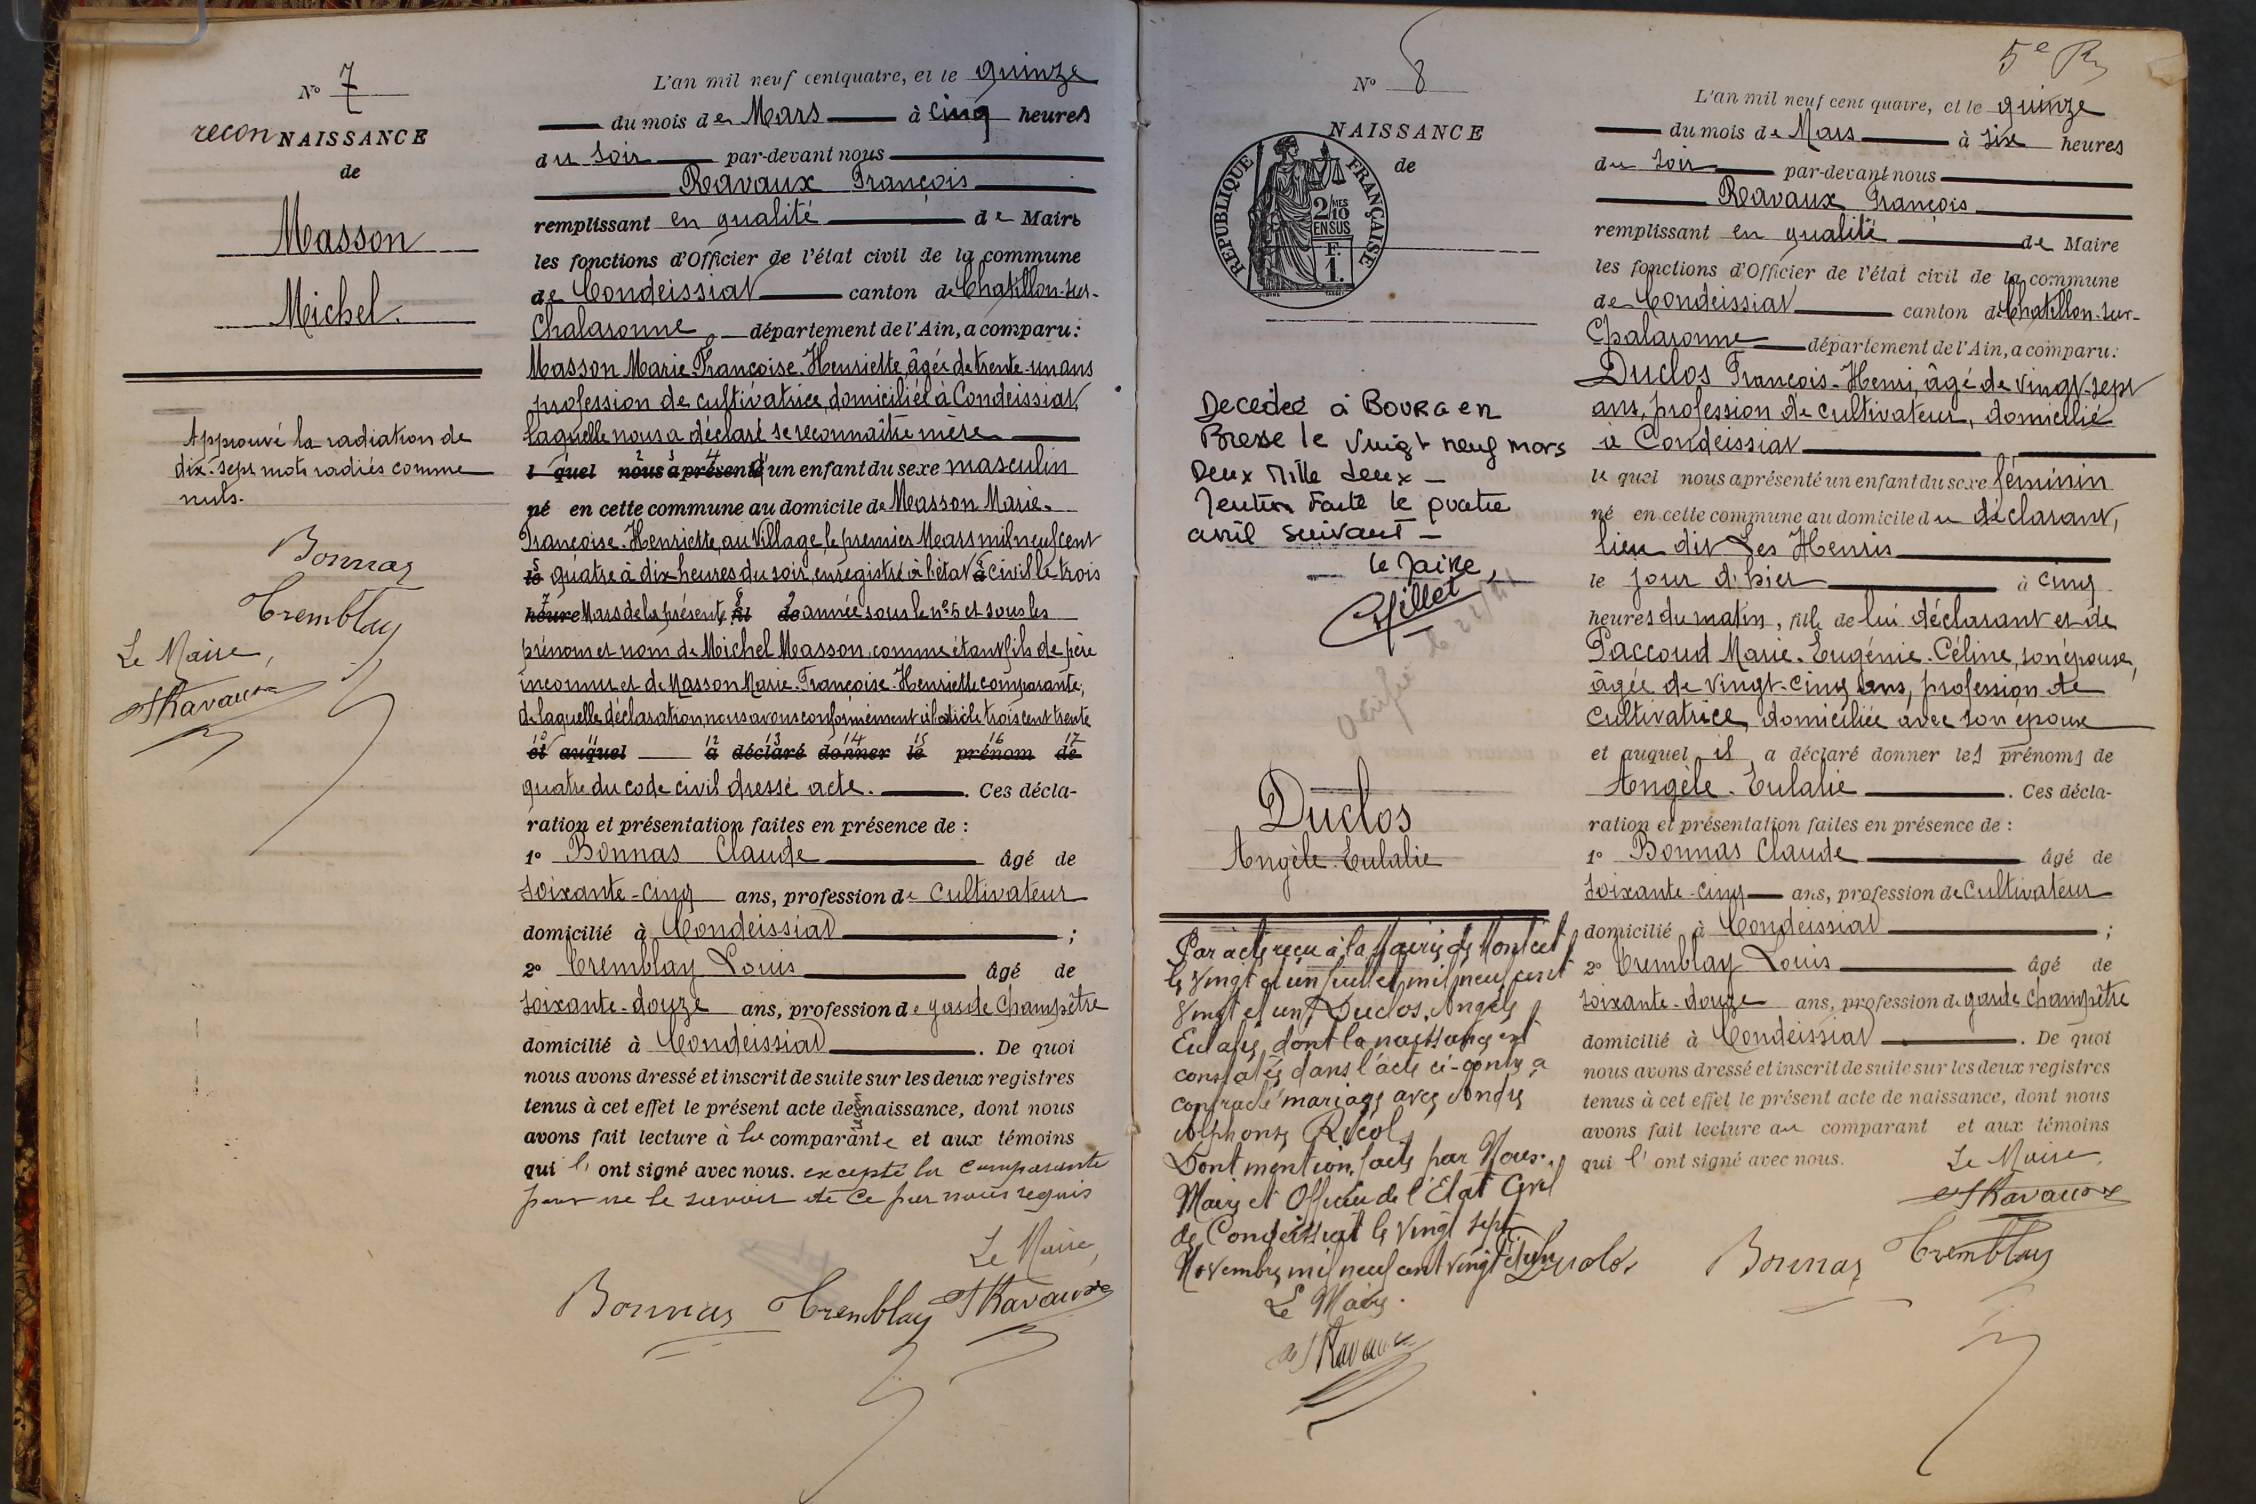 N° 7
reconNAISSANCE
de
Masson
Michel.
Approuvé la radiation de
dix-sept mots radiés comme
nuls.
Bonnas
Tremblay
Le Maire,
F Ravaux
L'an mil neuf cent quatre, et le quinze
du mois de Mars à cinq heures
du soir par-devant nous
Ravaux François
remplissant en qualité de Maire
les fonctions d'Officier de l'état civil de la commune
de Condeissiat canton de Chatillon-sur-
Chalaronne département de l'Ain, a comparu:
Masson Marie Françoise-Henriette, âgée de trente-un ans
profession de cultivatrice, domiciliée à Condeissiat,
laquelle nous a déclaré se reconnaître mère
l quel nous a présenté d'un enfant du sexe masculin
né en cette commune au domicile de Masson Marie-
Françoise-Henriette, au Village, le premier Mars mil neuf cent
le quatre à dix heures du soir, enregistré à l'état à civil le trois
heure Mars de la présente année sous le n° 5 et sous les
prénom et nom de Michel Masson, comme étant fils de père
inconnu et de Masson Marie-Françoise-Henriette comparante;
de laquelle déclaration nous avons conformément à l'article trois cent trente
et auquel a déclaré donner le prénom de
quatre du code civil dressé acte. Ces décla-
ration et présentation faites en présence de :
1° Bonnas Claude âgé de
soixante-cinq ans, profession de cultivateur
domicilié à Condeissiat ;
2° Tremblay Louis âgé de
soixante-douze ans, profession de garde champêtre
domicilié à Condeissiat . De quoi
nous avons dressé et inscrit de suite sur les deux registres
tenus à cet effet le présent acte de recon naissance, dont nous
avons fait lecture à la comparante et aux témoins
qui l' ont signé avec nous. excepté la comparante
pour ne le savoir de ce par nous requis
Le Maire,
Bonnas Tremblay F Ravaux
5e R
N° 8
NAISSANCE
de
REPUBLIQUE FRANÇAISE
2/10 MES
EN SUS
F.
1.
Decedee à Bourg en
Bresse le vingt neuf mars
Deux Mille deux -
Mention faite le quatre
avril suivant -
le Maire,
Gillet
Vérifié le
Duclos
Angèle-Eulalie
Par acte reçu à la Mairie de Montcet
le vingt et un juillet mil neuf cent
vingt et un, Duclos, Angèle
Eulalie, dont la naissance est
constatée dans l'acte ci-contre a
contracté mariage avec André
Alphonse Récol
Dont mention faite par Nous
Maire et Officier de l'Etat Civil
de Condeissiat le vingt sept
Novembre mil neuf cent vingt et un
Le Maire.
F Ravaux
L'an mil neuf cent quatre, et le quinze
du mois de Mars à six heures
du soir par-devant nous
Ravaux François
remplissant en qualité de Maire
les fonctions d'Officier de l'état civil de la commune
de Condeissiat canton de Chatillon-sur-
Chalaronne département de l'Ain, a comparu:
Duclos François-Henri, âgé de vingt-sept
ans, profession de cultivateur, domicilié
à Condeissiat
le quel nous a présenté un enfant du sexe féminin
né en cette commune au domicile du déclarant,
lieu dit Les Henris
le jour d'hier à cinq
heures du matin, fille de lui déclarant et de
Paccoud Marie-Eugénie-Céline, son épouse,
âgée de vingt-cinq ans, profession de
cultivatrice, domiciliée avec son époux
et auquel il a déclaré donner les prénoms de
Angèle-Eulalie . Ces décla-
ration et présentation faites en présence de :
1° Bonnas Claude âgé de
soixante-cinq ans, profession de cultivateur
domicilié à Condeissiat ;
2° Tremblay Louis âgé de
soixante-douze ans, profession de garde champêtre
domicilié à Condeissiat . De quoi
nous avons dressé et inscrit de suite sur les deux registres
tenus à cet effet le présent acte de naissance, dont nous
avons fait lecture au comparant et aux témoins
qui l' ont signé avec nous. Le Maire,
F Ravaux
Duclos Bonnas Tremblay